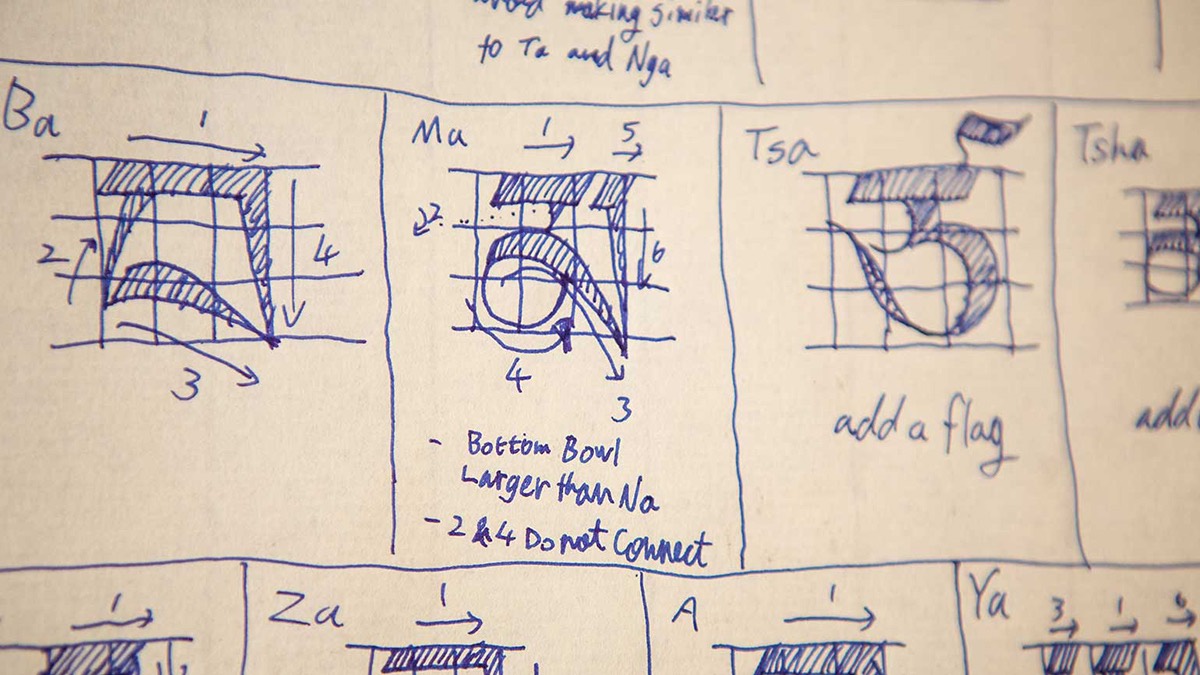 making similer
to Ta and Nga
Ba
1
2
3
4
Ma
1
5
2
6
4
3
- Bottom Bowl
Larger than Na
- 2 & 4 Do not Connect
Tsa
add a flag
Tsha
add
1
Za
1
A
1
Ya
3
1